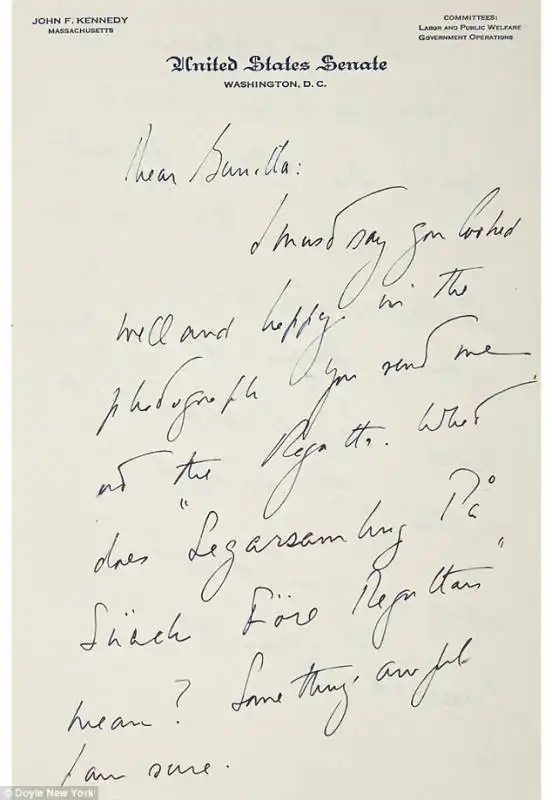 JOHN F. KENNEDY
MASSACHUSETTS
COMMITTEES:
LABOR AND PUBLIC WELFARE
GOVERNMENT OPERATIONS
United States Senate
WASHINGTON, D. C.
Dear Gunilla:
I must say you looked
well and happy in the
photograph you send me
at the Regatta. What
does "Segarsamling På
Snäck Före Regattan"
mean? Something awful
I am sure.
© Doyle New York